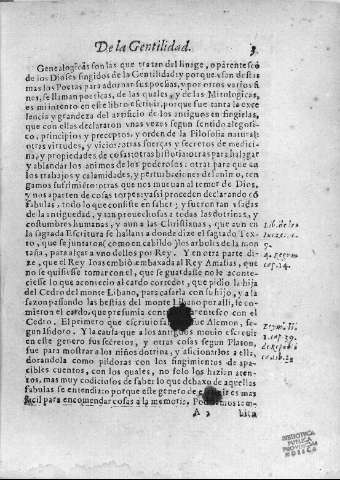 De la Gentilidad. 3.
Genealogicas son las que tratan del linage, o parentesco
de los Dioses fingidos de la Gentilidad: y porque vsan destas
mas los Poetas para adornar sus poesias, y por otros varios fi
nes, se llaman poeticas, de las quales, y de las Mitologicas,
es mi intento en este libro escriuir, porque fue tanta la exce
lencia y grandeza del artificio de los antiguos en fingirlas,
que con ellas declararon vnas vezes segun sentido alegori-
co, principios y preceptos, y orden de la Filosofia natural:
otras virtudes, y vicios: otras fuerças y secretos de medici-
na, y propiedades de cosas: otras historias: otras para halagar
y ablandar los animos de los poderosos: otras para que en
los trabajos y calamidades, y perturbaciones del animo, ten
gamos sufrimiento: otras que nos mueuan al temor de Dios,
y nos aparten de cosas torpes: y assi proceden declarando cõ
fabulas, todo lo que consiste en saber; y fueron tan vsadas
de la antiguedad, y tan prouechosas a todas las dotrinas, y
costumbres humanas, y aun a las Christianas, que aun en
la sagrada Escritura se hallan a donde dize el sagrado Tex-
to, que se juntaron (como en cabildo) los arboles de la mon
taña, para alçar a vno dellos por Rey. Y en otra parte di-
ze, que el Rey Ioas embiò embaxada al Rey Amasias, que
no se quisiesse tomar con el, que se guardasse no le aconte-
ciesse lo que acontecio al cardo corredor, que pidio la hija
del Cedro del monte Libano, para casarla con su hijo, y a la
sazon passando las bestias del monte Libano por alli, se co-
mieron el cardo que presumia parentesco con el
Cedro. El primero que escriuio fue Alemon, se-
gun Isidoro. Y la causa que a los antiguos mouio escriuir
en este genero sus secretos, y otras cosas segun Platon,
fue para mostrar a los niños dotrina, y aficionarlos a ella,
dorandola como pildoras con los fingimientos de apa-
cibles cuentos, con los quales, no solo los hazian aten-
tos, mas muy codiciosos de saber lo que debaxo de aquellas
fabulas se entendia: porque este genero de es mas
facil para encomendar cosas a la memoria. tom-
A 2 bien
cap. 14.
BIBLIOTECA
PUBLICA
PROVINCIAL
HUESCA